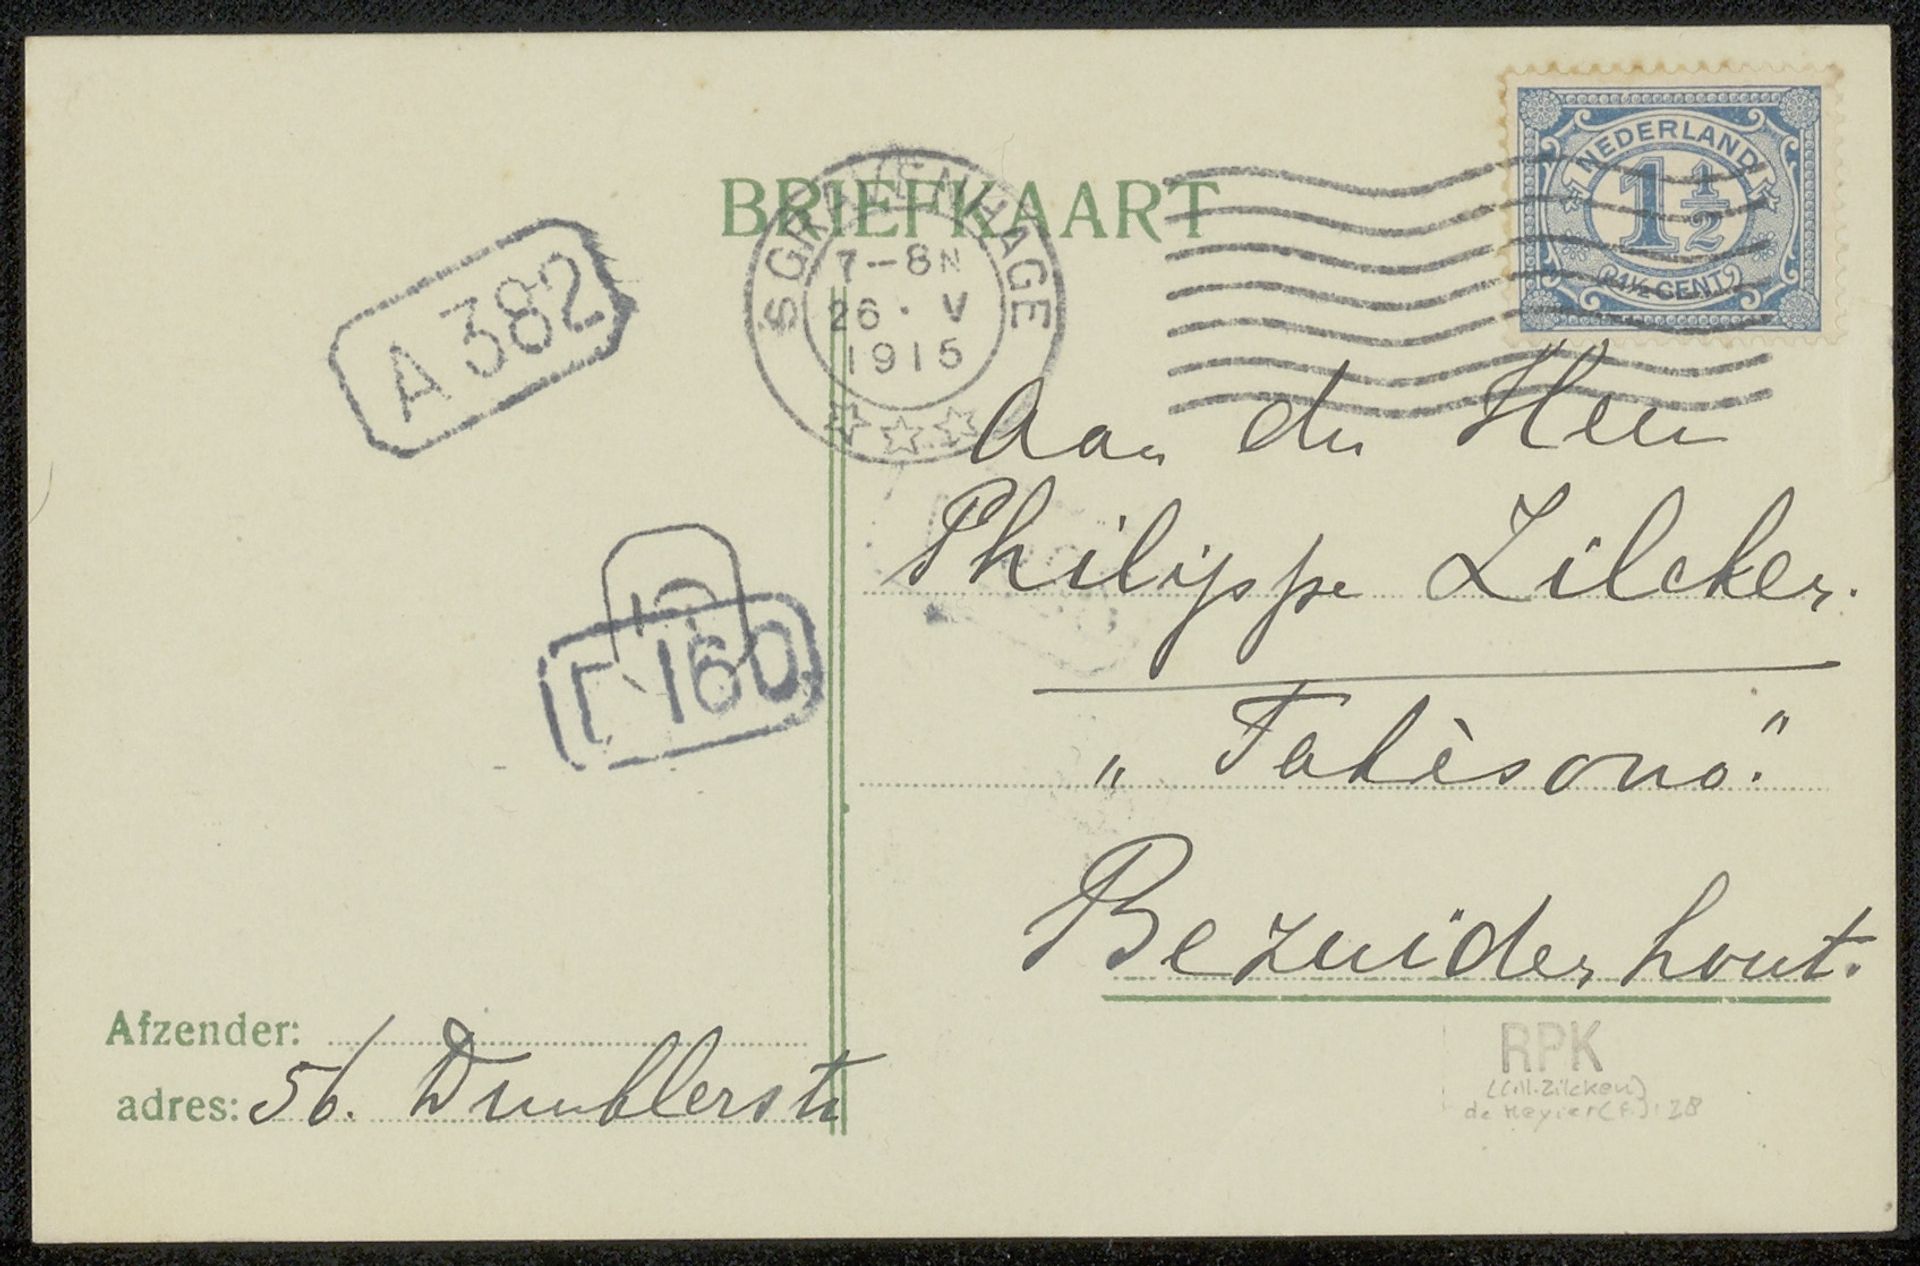 BRIEFKAART
NEDERLAND
1 1/2
1½ CENT
'S GRAVENHAGE
7-8N
26·V
1915
A 382
160
Aan den Heer
Philippe Zilcken.
"Fatèsono."
Bezuidenhout.
Afzender:
adres: 56.
RPK
(Coll. Zilcken)
de Meyier (F.): 28